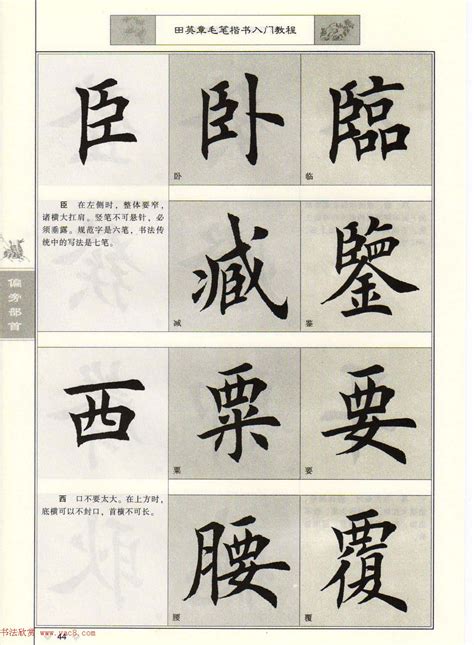 田英章毛笔楷书入门教程
臣 卧 臨
卧 临
臣 在左侧时，整体要窄，
诸横大扛肩。竖笔不可悬针，必
须垂露。规范字是六笔，书法传
统中的写法是七笔。
臧 鑒
鉴
偏旁部首
西 粟 要
粟 要
西 口不要太大。在上方时，
底横可以不封口，首横不可长。
腰 覆
腰 覆
44
书法欣赏 www.yac8.com